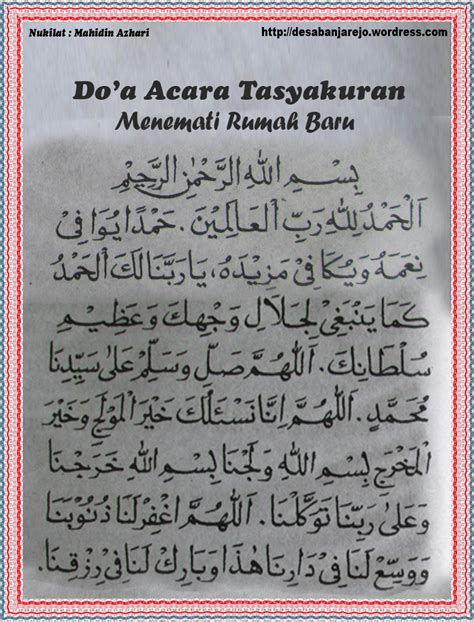 Nukilat : Mahidin Azhari http://desabanjarejo.wordpress.com
Do'a Acara Tasyakuran
Menemati Rumah Baru
بِسْمِ اللهِ الرَّحْمٰنِ الرَّحِيْمِ
اَلْحَمْدُ لِلّٰهِ رَبِّ الْعَالَمِيْنَ. حَمْدًا يُوَافِيْ
نِعَمَهُ وَيُكَافِئُ مَزِيْدَهُ، يَارَبَّنَا لَكَ الْحَمْدُ
كَمَا يَنْبَغِيْ لِجَلَالِ وَجْهِكَ وَعَظِيْمِ
سُلْطَانِكَ. اَللّٰهُمَّ صَلِّ وَسَلِّمْ عَلٰى سَيِّدِنَا
مُحَمَّدٍ. اَللّٰهُمَّ اِنَّا نَسْئَلُكَ خَيْرَ الْمَوْلَجِ وَخَيْرَ
الْمَخْرَجِ بِسْمِ اللهِ وَلَجْنَا بِسْمِ اللهِ خَرَجْنَا
وَعَلٰى رَبِّنَا تَوَكَّلْنَا. اَللّٰهُمَّ اغْفِرْلَنَا ذُنُوْبَنَا
وَوَسِّعْ لَنَا فِيْ دَارِنَا هٰذَا وَبَارِكْ لَنَا فِيْ رِزْقِنَا.